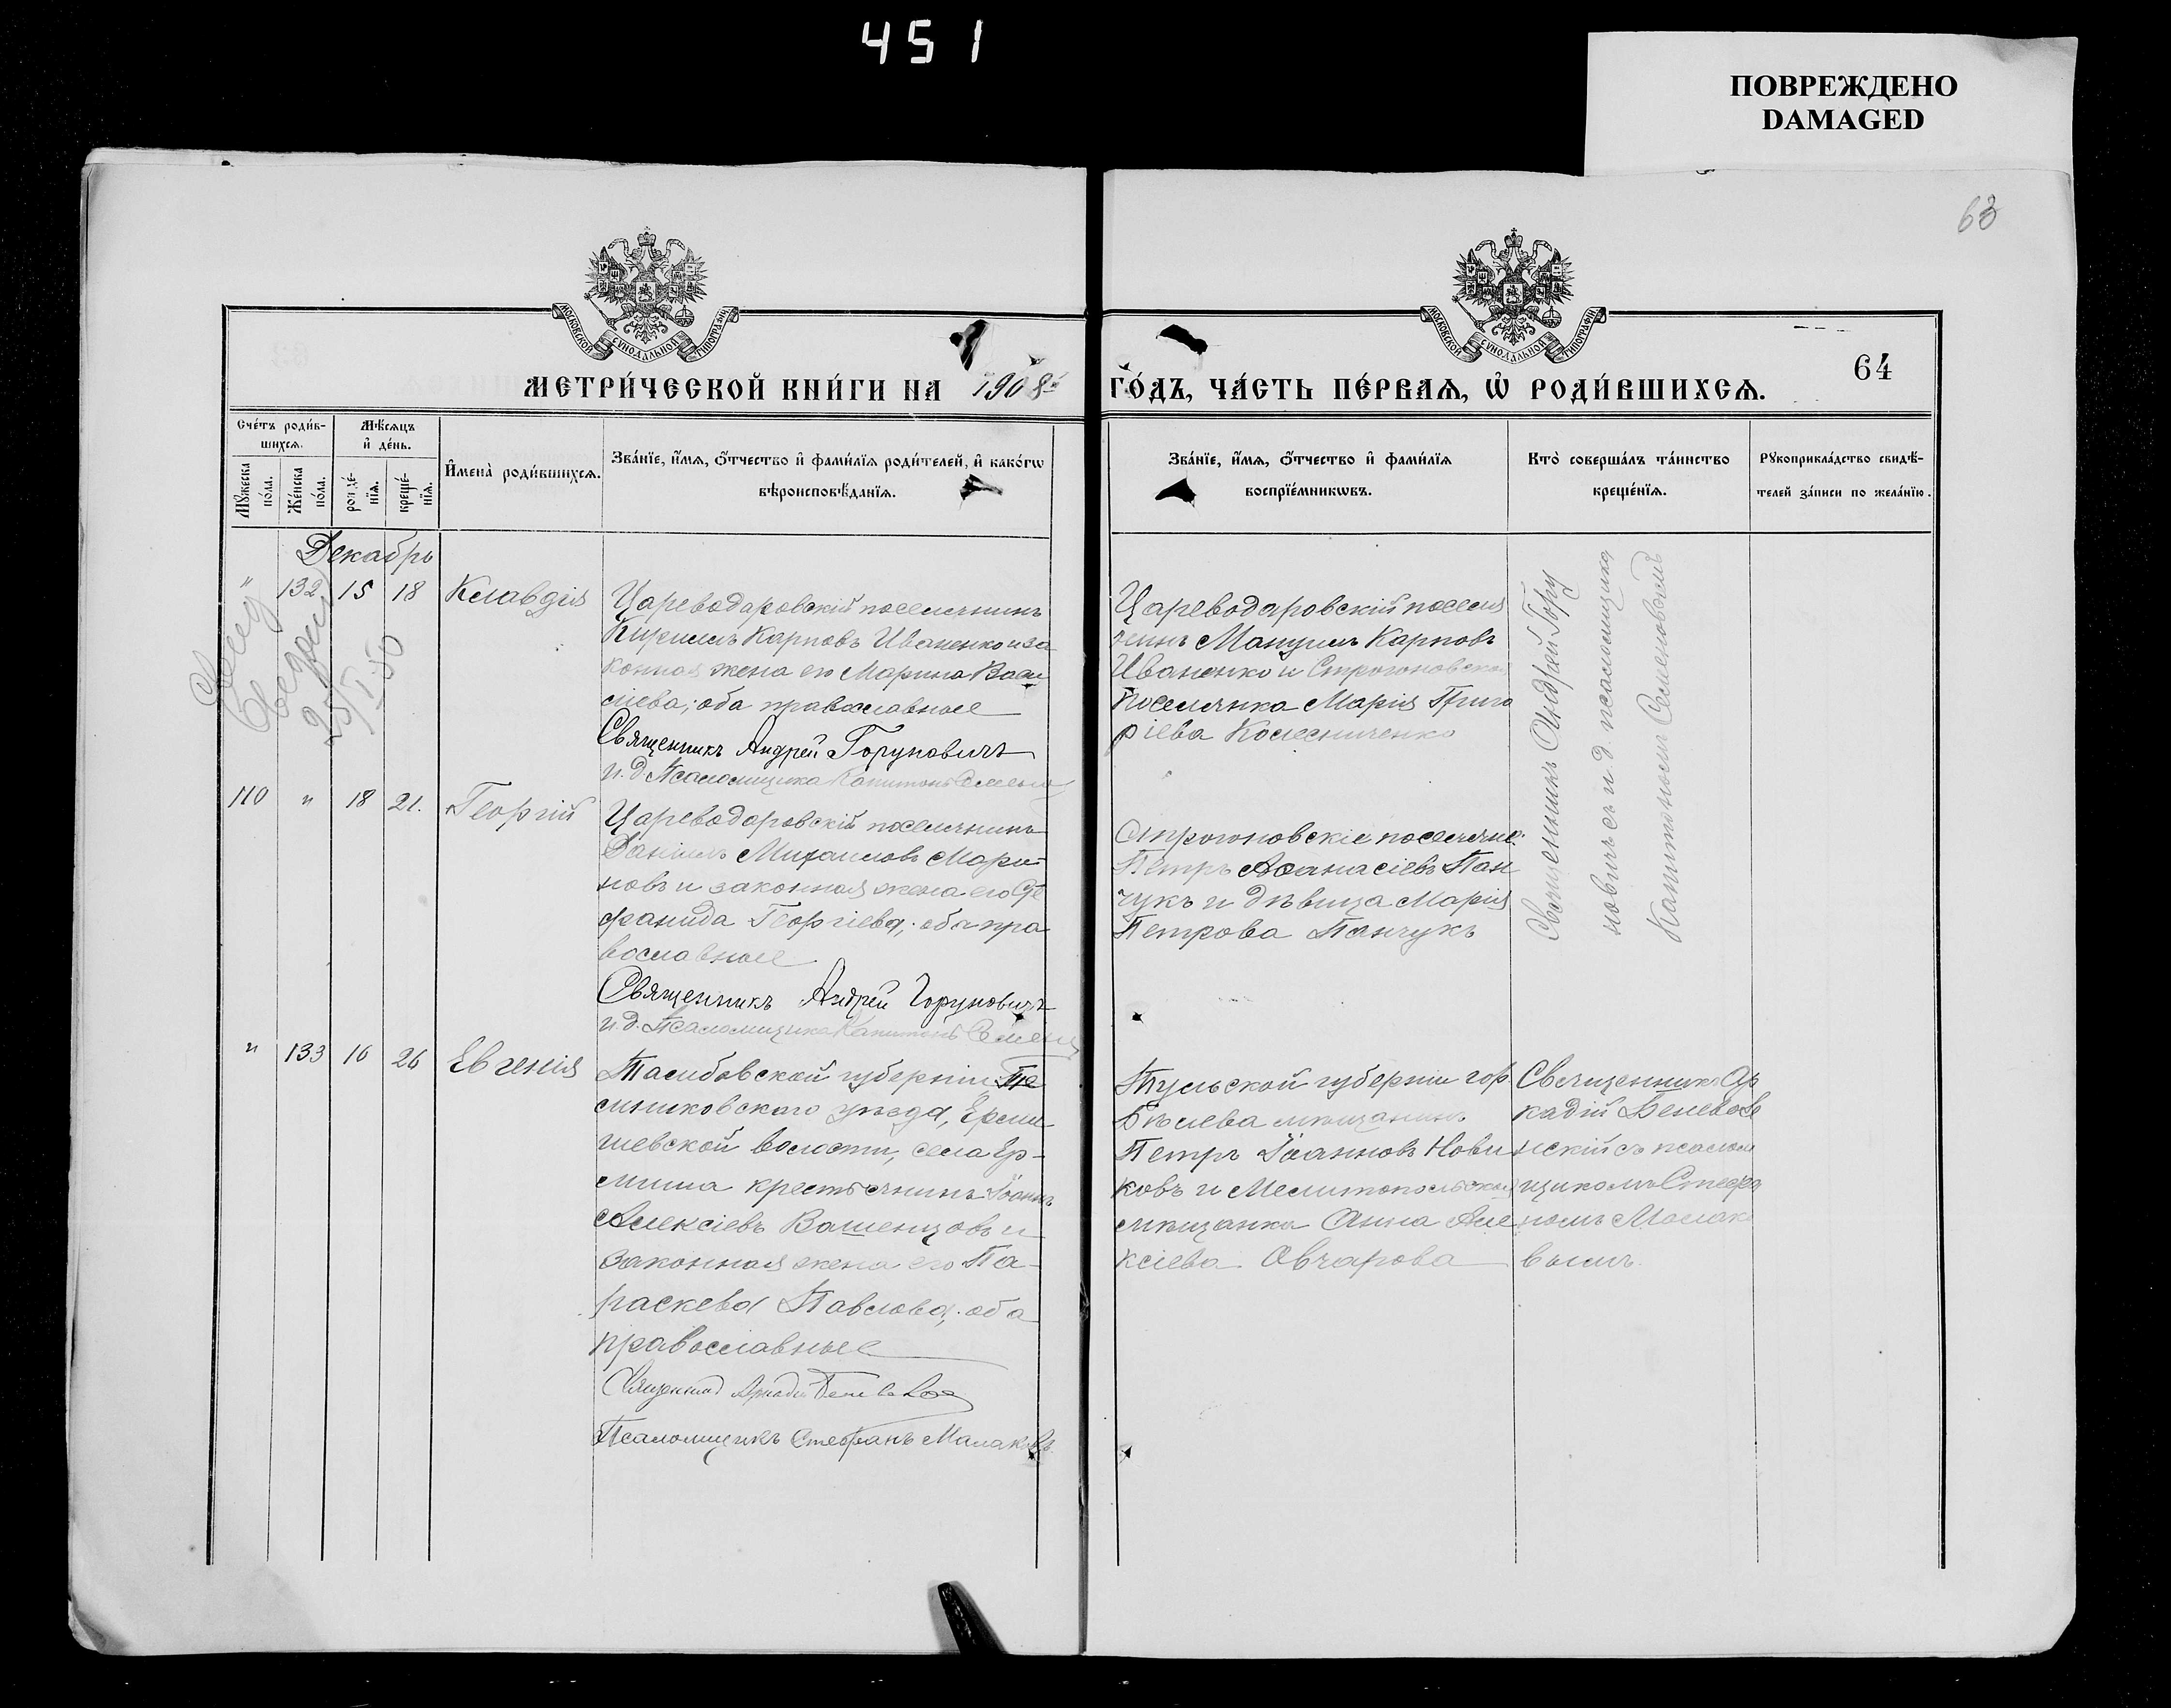 451
ПОВРЕЖДЕНО
DAMAGED
63
64
МОСКОВСКОЙ СѴНОДАЛЬНОЙ ТИПОГРАФІИ
МОСКОВСКОЙ СѴНОДАЛЬНОЙ ТИПОГРАФІИ
МЕТРИ́ЧЕСКОЙ КНИ́ГИ НА 1908й
ГО́ДЪ, ЧА́СТЬ ПЕ́РВАѦ, Ѡ҆ РОДИ́ВШИХСѦ.
Сче́тъ роди́в-
шихсѧ.
Мꙋ́жеска
по́ла.
Же́нска
по́ла.
Мѣ́сѧцъ
и҆ де́нь.
рожде́-
нїѧ.
креще́-
нїѧ.
И҆мена̀ роди́вшихсѧ.
Зва́нїе, и҆́мѧ, ѻ҆́тчество и҆ фами́лїѧ роди́телей, и҆ како́гѡ
вѣроисповѣ́данїѧ.
Зва́нїе, и҆́мѧ, ѻ҆́тчество и҆ фами́лїѧ
воспрїе́мникѡвъ.
Кто̀ соверша́лъ та́инство
креще́нїѧ.
Рꙋкоприкла́дство свидѣ́-
телей за́писи по жела́нїю.
Декабрь
" 132 15 18 Клавдія
25/I 50
Цареводаровскій поселянинъ
Кириллъ Карповъ Иваненко и за
конная жена его Марина Васи
ліева; оба православные
Священникъ Андрей Горуновичъ
и. д. Псаломщика Капитонъ Семено
Цареводаровскій поселя
нинъ Мануилъ Карповъ
Иваненко и Строгоновская
поселянка Марія Григо
ріева Колесниченко
Священникъ Андрей Гору
новичъ съ и. д. псаломщика
Капитономъ Семеновымъ
110 " 18 21. Георгій
Цареводаровскій поселянинъ
Даніилъ Михаиловъ Мари-
новъ и законная жена его Сте
фанида Георгіева; оба пра
вославные
Священникъ Андрей Горуновичъ
и. д. Псаломщика Капитонъ Семено
Строгоновскіе поселяне:
Петръ Аѳанасіевъ Пан
чукъ и дѣвица Марія
Петрова Панчукъ
" 133 16 26 Евгенія
Тамбовской губерніи Те
мниковскаго уѣзда, Ерми-
шевской волости, села Ер-
миша крестьянинъ Іоаннъ
Алексіевъ Вашенцовъ и
законная жена его Па-
раскева Павлова; оба
православные
Священникъ Аркадій
Псаломщикъ Стефанъ Малаковъ
Тульской губерніи гор.
Бѣлева мѣщанинъ
Петръ Іоанновъ Нови
ковъ и Мелитопольская
мѣщанка Анна Але
ксіева Овчарова
Священникъ Ар
кадій
нскій съ псалом
щикомъ Стефа
номъ Малако
вымъ